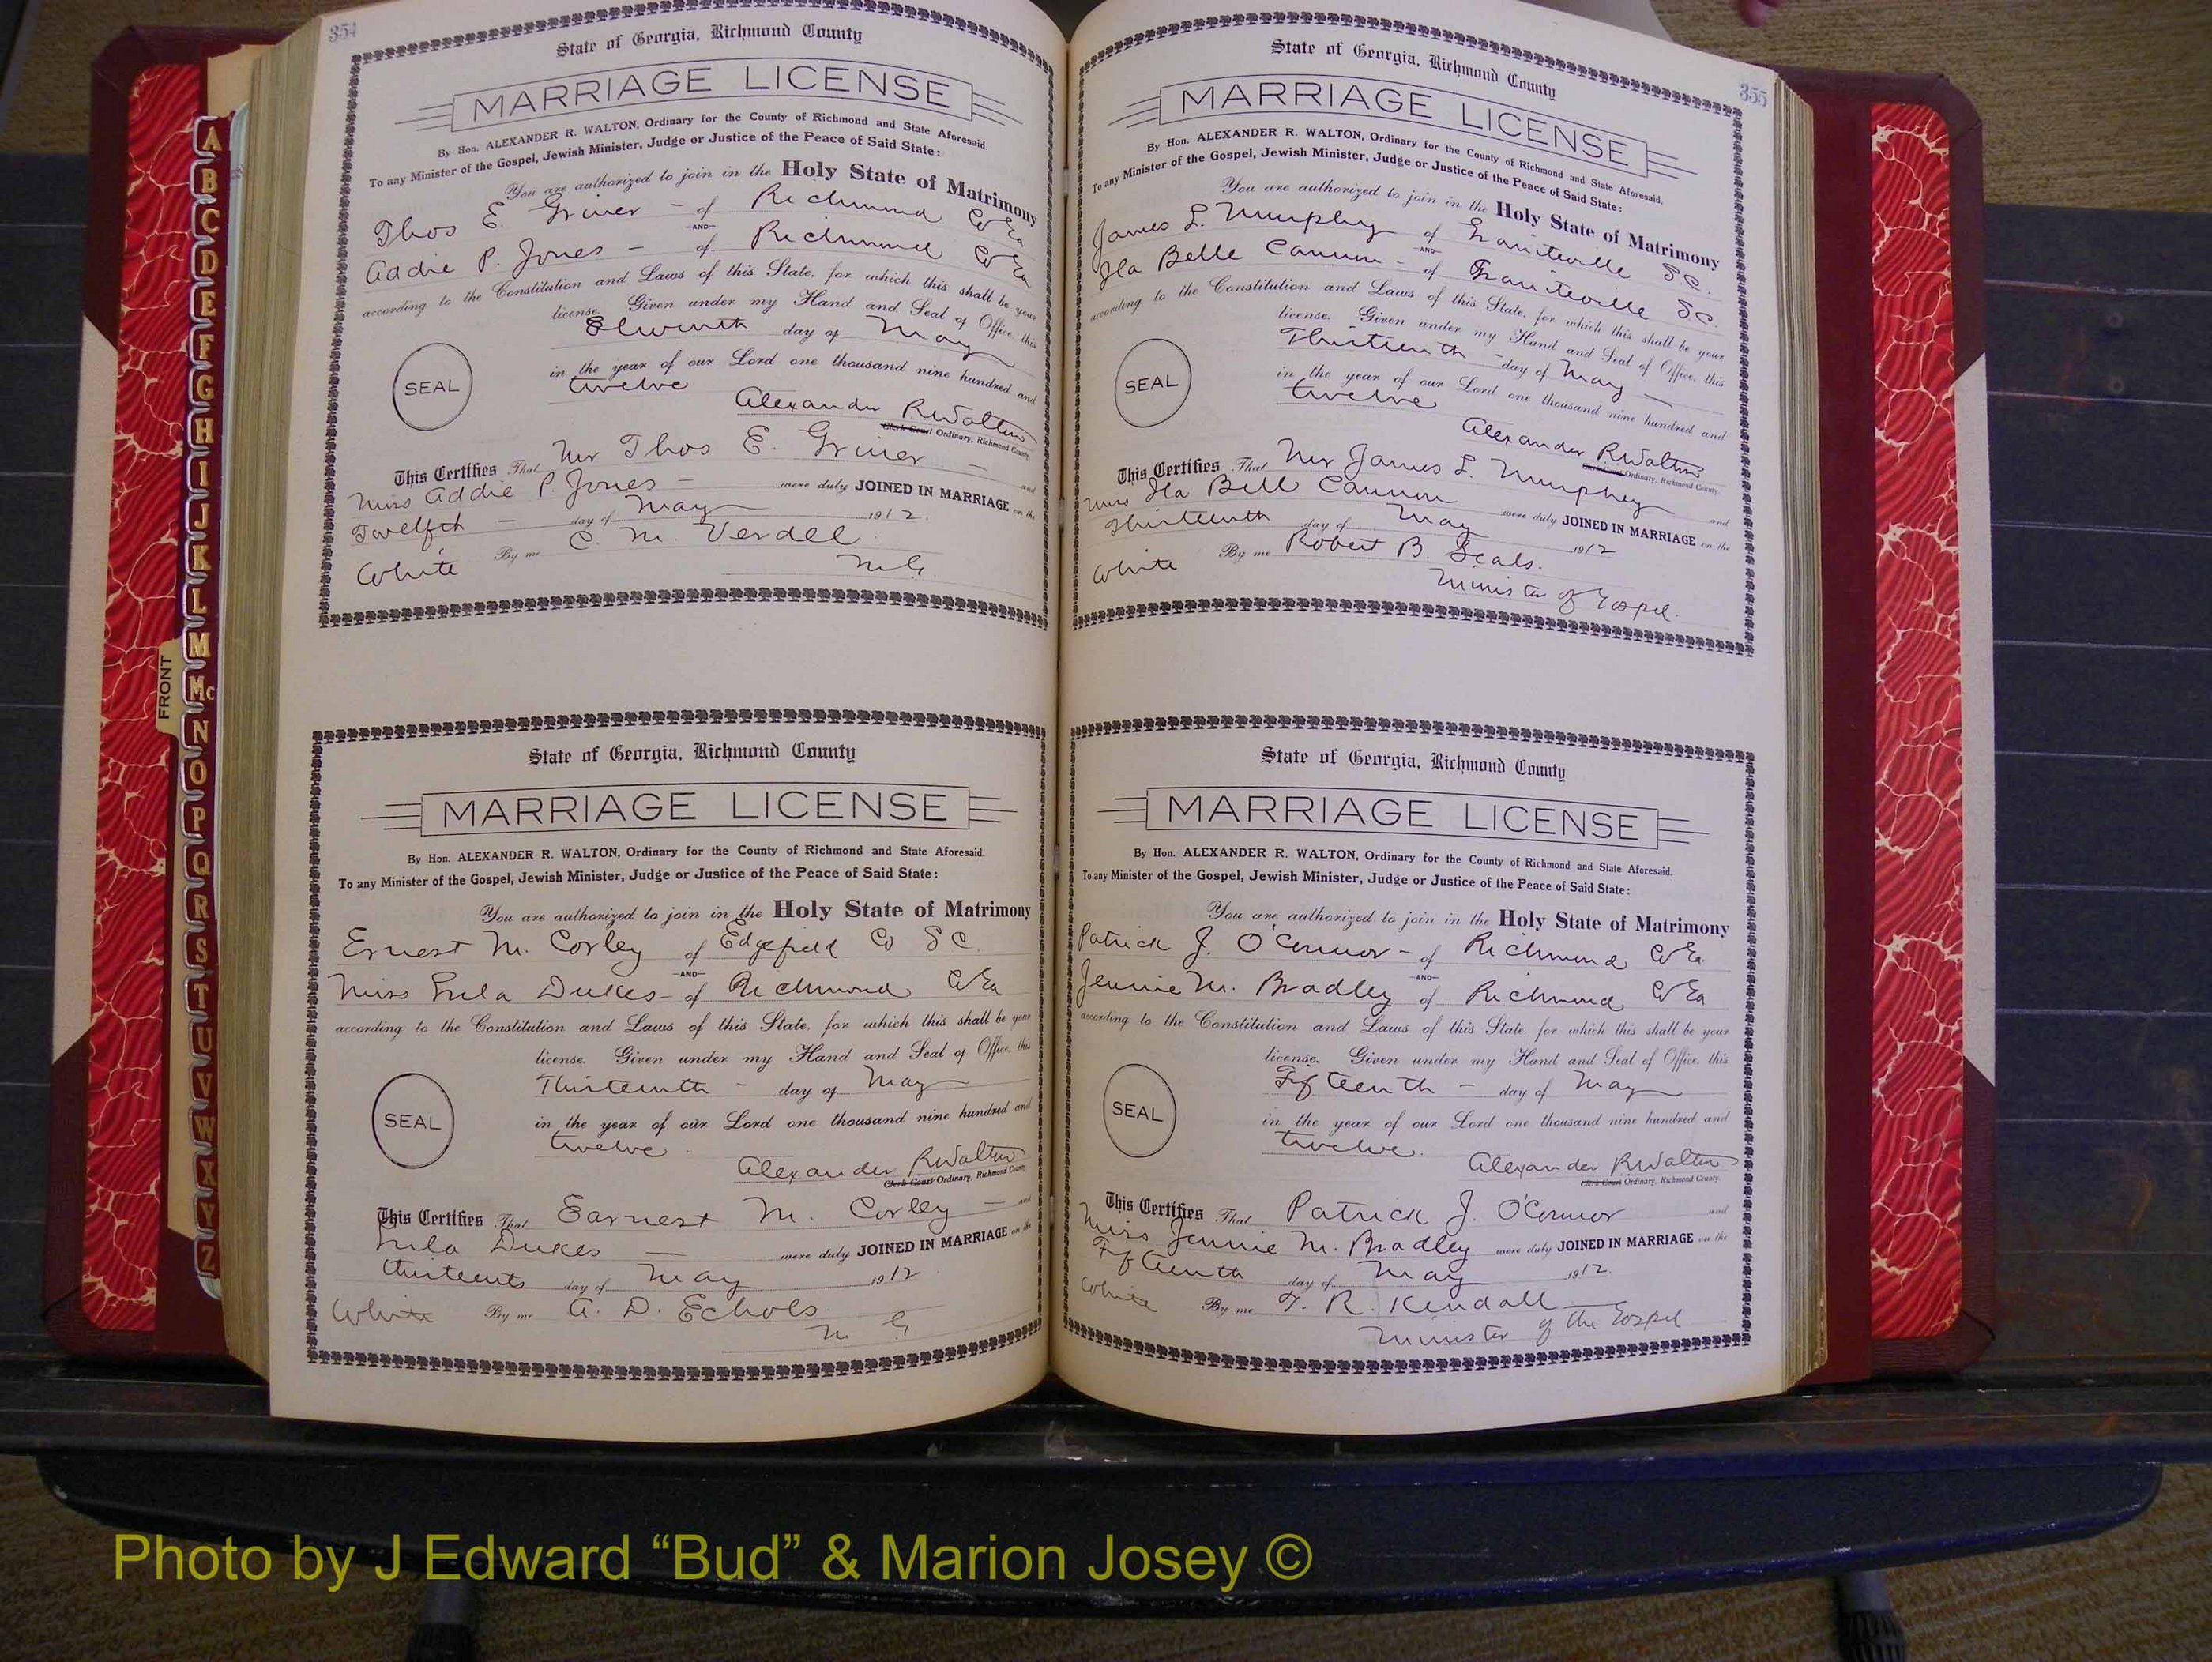 354
State of Georgia, Richmond County
MARRIAGE LICENSE
By Hon. ALEXANDER R. WALTON, Ordinary for the County of Richmond and State Aforesaid.
To any Minister of the Gospel, Jewish Minister, Judge or Justice of the Peace of Said State:
You are authorized to join in the Holy State of Matrimony
Thos E. Griner - of Richmond Co Ga
-AND-
Addie P. Jones - of Richmond Co Ga
according to the Constitution and Laws of this State, for which this shall be your
license. Given under my Hand and Seal of Office, this
Eleventh day of May
SEAL
in the year of our Lord one thousand nine hundred and
twelve
Alexander R Walton
Clerk Court Ordinary, Richmond County
This Certifies That Mr Thos E. Griner - and
Miss Addie P. Jones - were duly JOINED IN MARRIAGE on the
Twelfth - day of May 1912.
White By me C. M. Verdel
M.G.
State of Georgia, Richmond County
MARRIAGE LICENSE
By Hon. ALEXANDER R. WALTON, Ordinary for the County of Richmond and State Aforesaid.
To any Minister of the Gospel, Jewish Minister, Judge or Justice of the Peace of Said State:
You are authorized to join in the Holy State of Matrimony
Ernest M. Corley of Edgefield Co S C
-AND-
Miss Lula Dukes - of Richmond Co Ga
according to the Constitution and Laws of this State, for which this shall be your
license. Given under my Hand and Seal of Office, this
Thirteenth - day of May
SEAL
in the year of our Lord one thousand nine hundred and
twelve
Alexander R Walton
Clerk Court Ordinary, Richmond County
This Certifies That Earnest M. Corley - and
Lula Dukes - were duly JOINED IN MARRIAGE on the
thirteenth day of May 1912
White By me A. D. Echols
M G
355
State of Georgia, Richmond County
MARRIAGE LICENSE
By Hon. ALEXANDER R. WALTON, Ordinary for the County of Richmond and State Aforesaid.
To any Minister of the Gospel, Jewish Minister, Judge or Justice of the Peace of Said State:
You are authorized to join in the Holy State of Matrimony
James L. Murphy of Graniteville S.C.
-AND-
Ila Belle Cannon - of Graniteville S.C.
according to the Constitution and Laws of this State, for which this shall be your
license. Given under my Hand and Seal of Office, this
Thirteenth - day of May
SEAL
in the year of our Lord one thousand nine hundred and
twelve
Alexander R Walton
Clerk Court Ordinary, Richmond County
This Certifies That Mr James L. Murphey and
Miss Ila Bell Cannon were duly JOINED IN MARRIAGE on the
Thirteenth day of May 1912
White By me Robert B. Seals.
Minister of Gospel.
State of Georgia, Richmond County
MARRIAGE LICENSE
By Hon. ALEXANDER R. WALTON, Ordinary for the County of Richmond and State Aforesaid.
To any Minister of the Gospel, Jewish Minister, Judge or Justice of the Peace of Said State:
You are authorized to join in the Holy State of Matrimony
Patrick J. O'Connor - of Richmond Co Ga.
-AND-
Jennie M. Bradley of Richmond Co Ga
according to the Constitution and Laws of this State, for which this shall be your
license. Given under my Hand and Seal of Office, this
Fifteenth - day of May
SEAL
in the year of our Lord one thousand nine hundred and
twelve.
Alexander R Walton
Clerk Court Ordinary, Richmond County
This Certifies That Patrick J. O'Connor and
Miss Jennie M. Bradley were duly JOINED IN MARRIAGE on the
Fifteenth day of May 1912.
White By me T. R. Kendall
Minister of the Gospel
A
B
C
D
E
F
G
H
I
J
K
L
M
Mc
N
O
P
Q
R
S
T
U
V
W
X
Y
Z
FRONT
Photo by J Edward “Bud” & Marion Josey ©